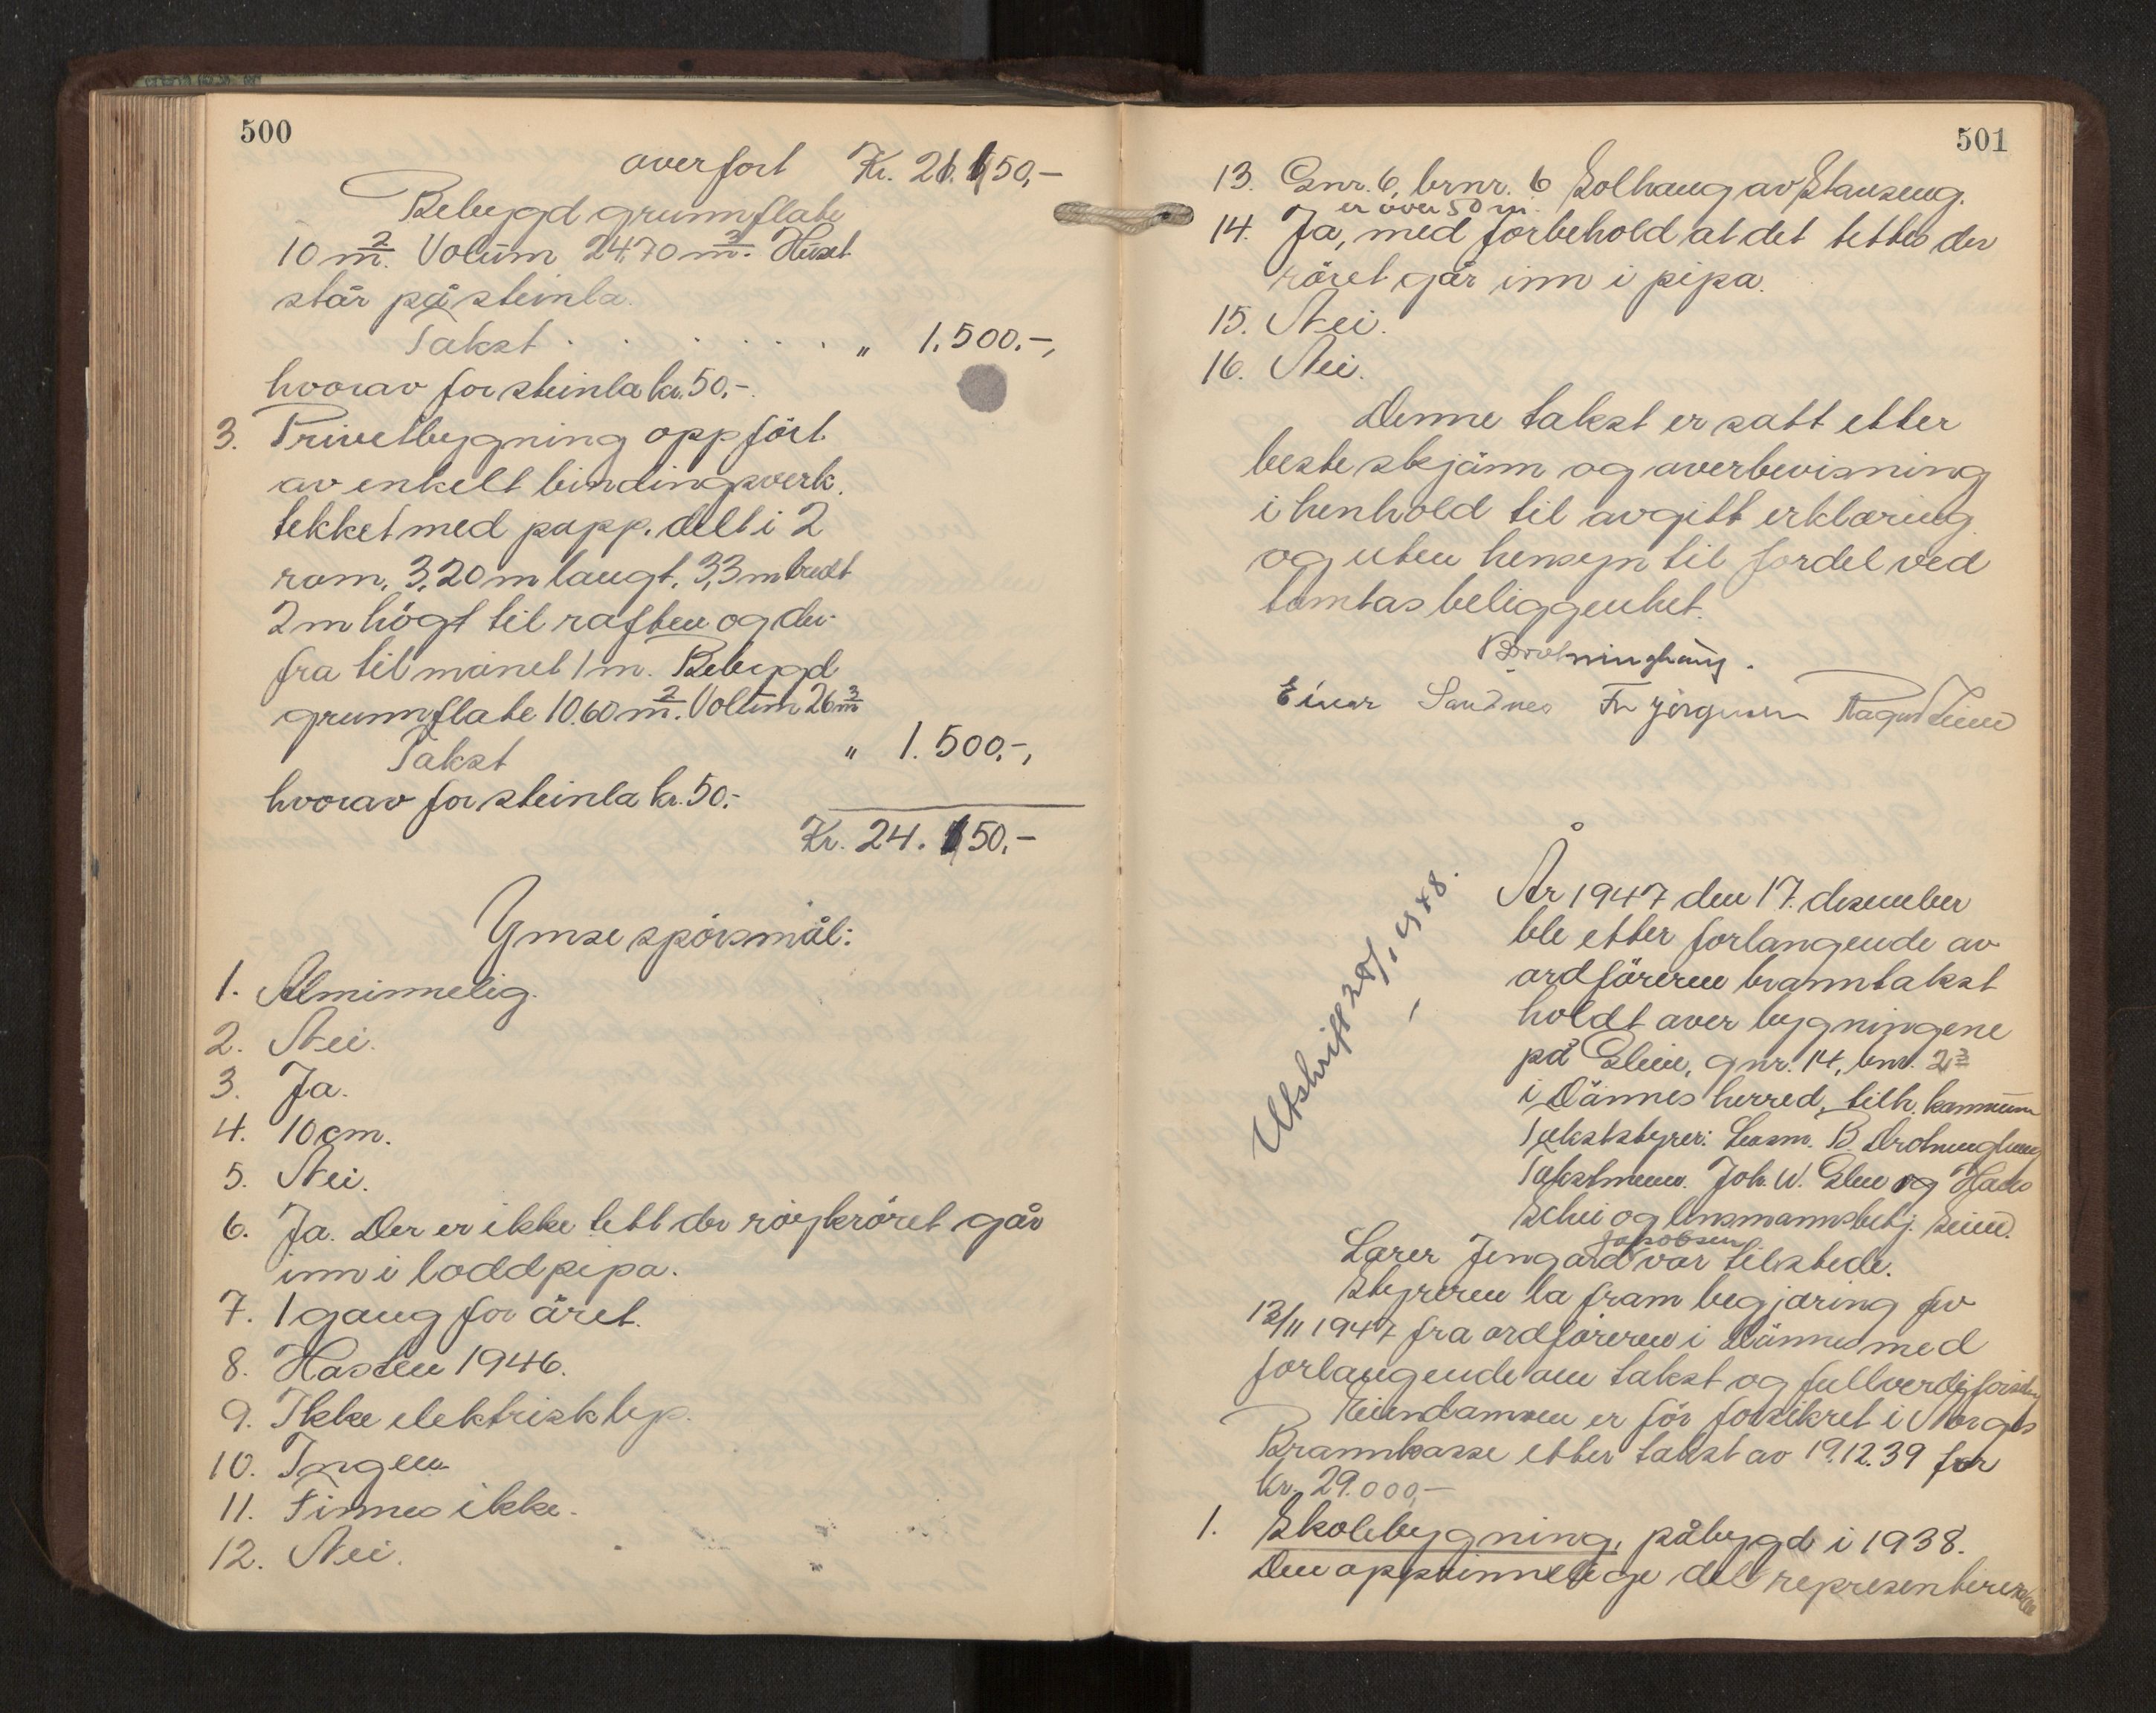 500
overfört Kr. 21.150,-
Bebygd grunnflate
10 m². Volum 24,70 m³. Huset
står på steinla.
Takst . . . . . . " 1.500.-,
hvorav for steinla kr. 50,-.
3. Privetbygning oppfört
av enkelt bindingsverk,
tekket med papp, delt i 2
rom, 3,20 m langt, 3,3 m bredt
2 m högt til raften og der-
fra til mönet 1 m. Bebygd
grunnflate 10.60 m². Volum 26 m³
Takst " 1.500,-,
hvorav for steinla kr. 50,-
Kr. 24.150,-
Ymse spörsmål:
1. Alminnelig.
2. Nei.
3. Ja.
4. 10 cm.
5. Nei.
6. Ja. Der er ikke tett der röykröret går
inn i loddpipa.
7. 1 gang for året.
8. Hösten 1946.
9. Ikke elektrisk lys.
10. Ingen
11. Finnes ikke.
12. Nei.
501
13. Gnr. 6, brnr. 6 Solhaug av Stauseng.
er över 50 m.
14. Ja, med forbehold at det tettes der
röret går inn i pipa.
15. Nei.
16. Nei.
Denne takst er satt etter
beste skjönn og overbevisning
i henhold til avgitt erklæring
og uten hensyn til fordel ved
tomtas beliggenhet.
BDrotninghaug.
Einar Sandnes Fr Jörgensen Ragnv Seines
Utskrift 28/1 1948.
År 1947 den 17. desember
ble etter forlangende av
ordföreren branntakst
holdt over bygningene
på Glein, gnr. 14, bnr. 23
i Dönnes herred, tilh. kommunen
Takststyrer: Lensm. B. Drotninghaug
Takstmenn. Joh. W. Glein og Hans
Schei og lensmannsbetj. Seines.
Jakobsen
Lærer Jengård var tilstede.
Styreren la fram begjæring fra
12/11 1947 fra ordföreren i Dönnes med
forlangende om takst og fullverdiforsikring
Eiendommen er för forsikret i Norges
Brannkasse etter takst av 19.12.39 for
kr. 29.000,-
1. Skolebygning, påbygd i 1938.
Den opprinnelige del representerer